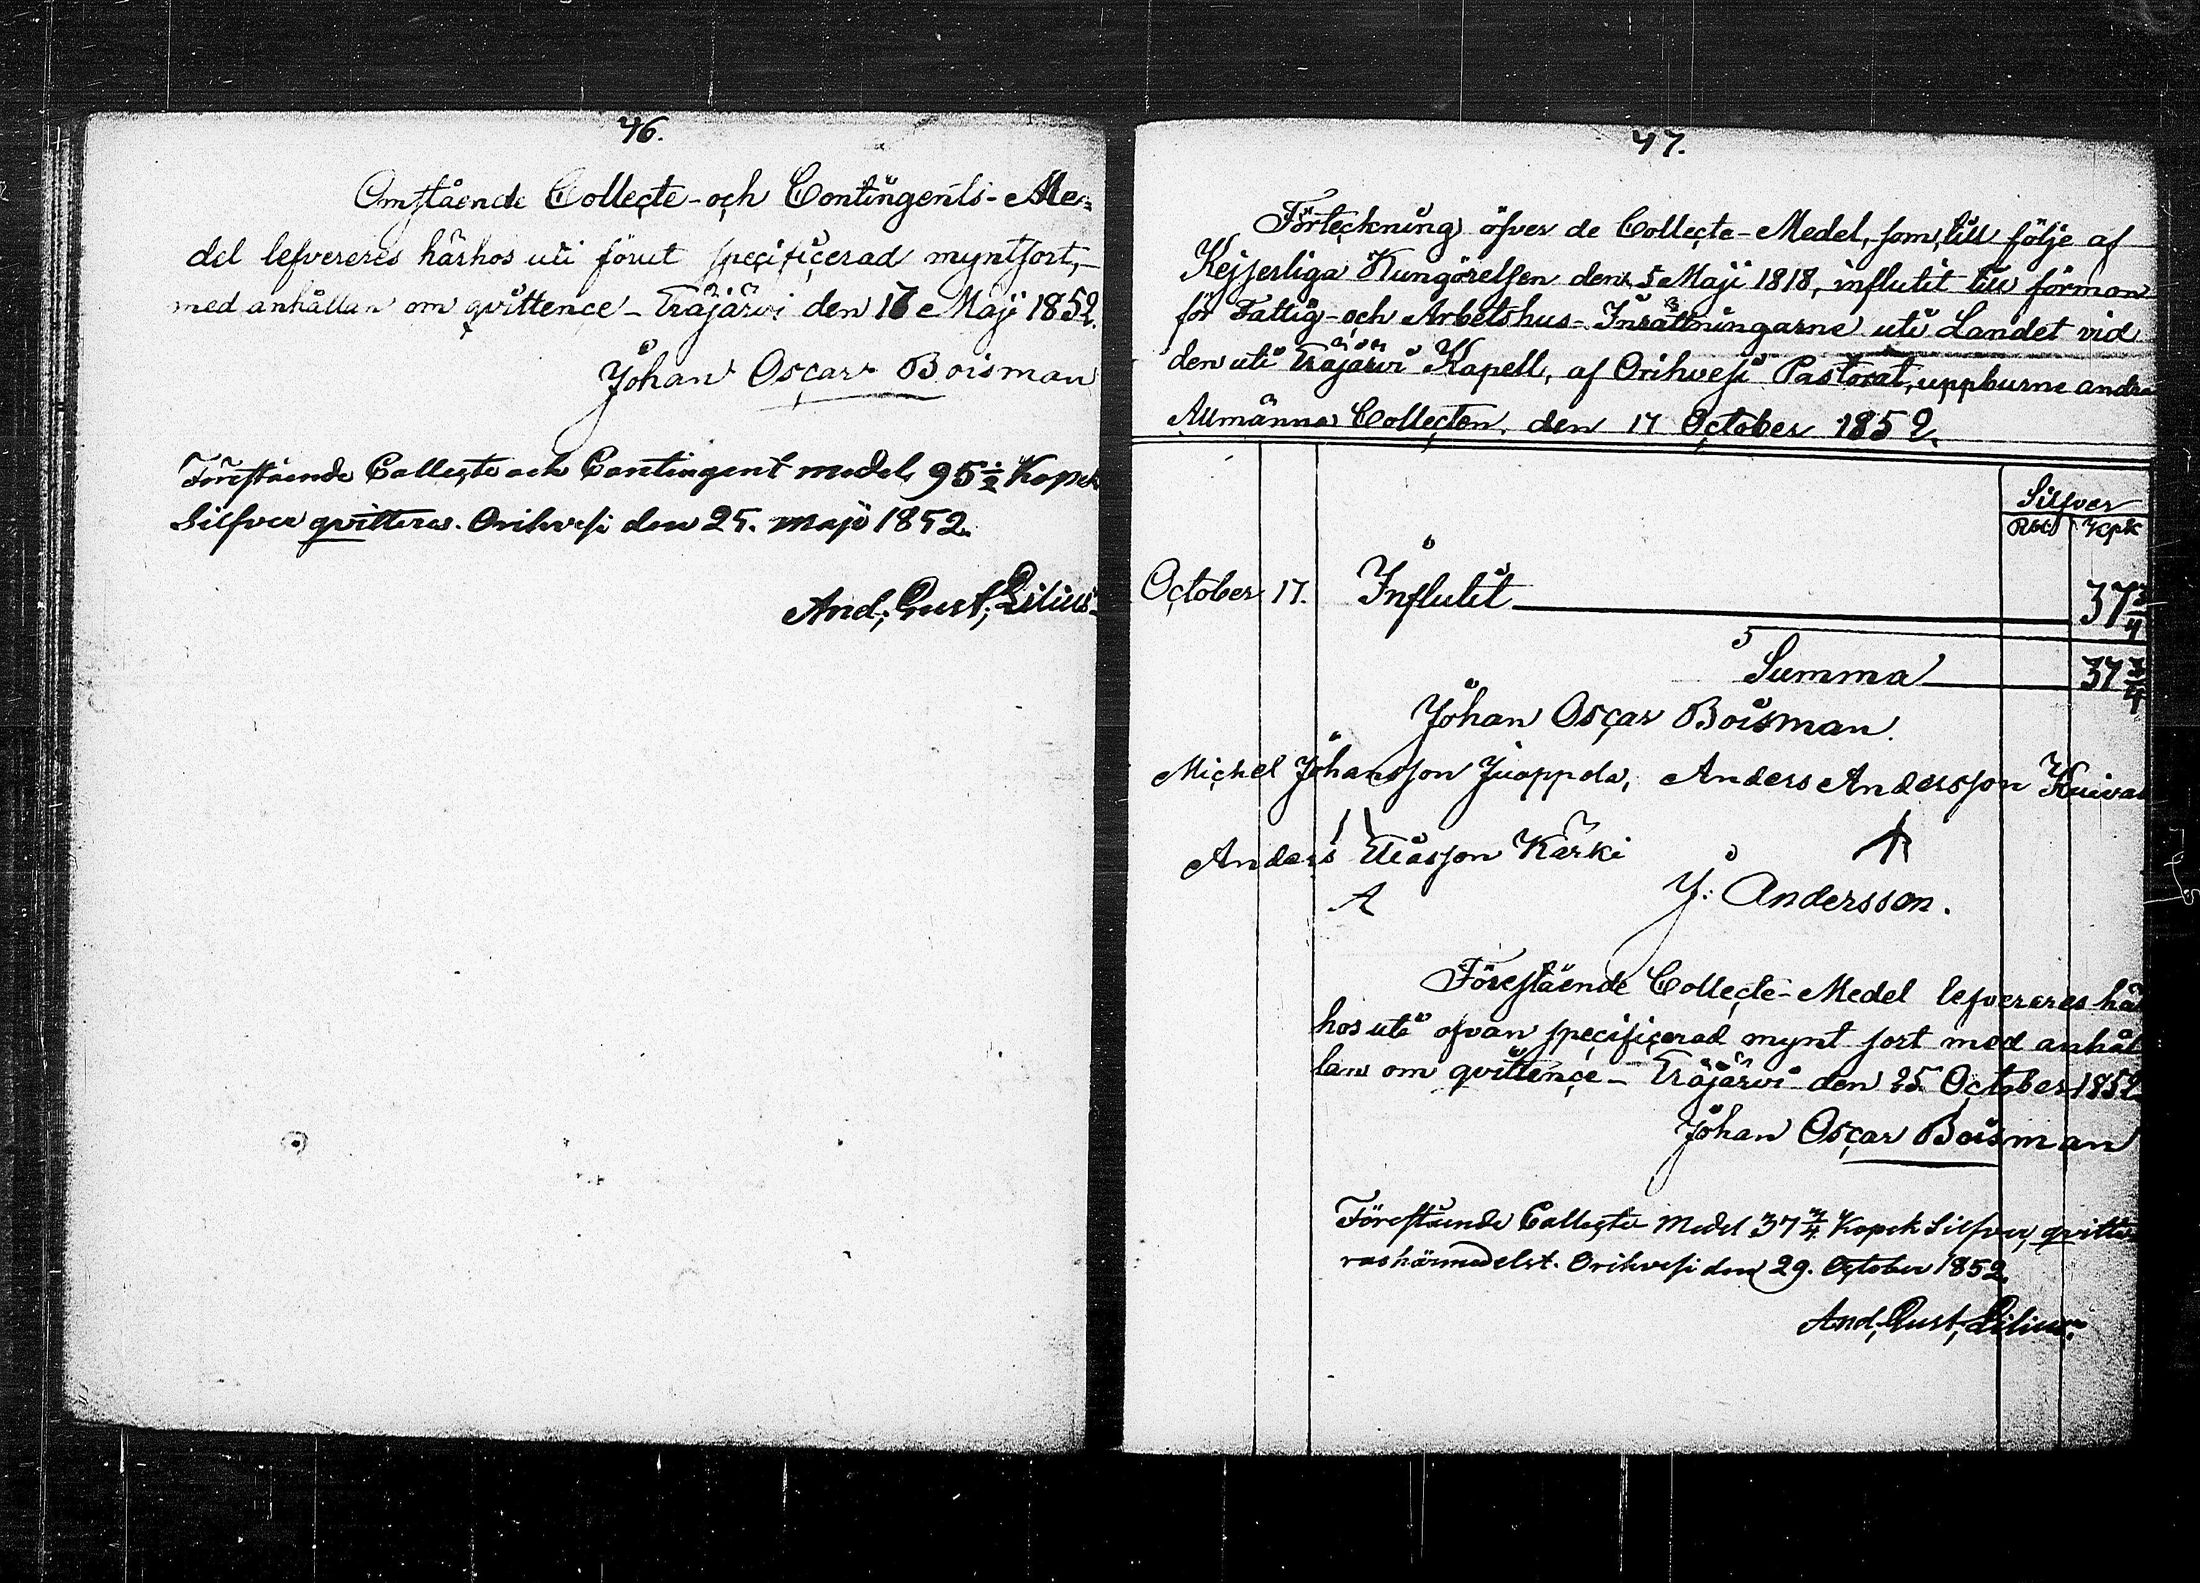 46.
Omstående Collecte- och Contingents- Me-
del lefvereres härhos uti förut specificerad myntsort,
med anhållan om qvittence - Eräjärvi den 17 Maji 1852.
Johan Oscar Boisman
Förestående Collecte och Contingent medel, 95 1/2 Kopek
Silfver qvitteras. Orihvesi den 25. maji 1852.
And, Gust, Lilius
47.
Förteckning öfver de Collecte-Medel, som till följe af
Kejserliga Kungörelsen den 5 Maji 1818, influtit till förmon
för Fattig- och Arbetshus-Inrättningarne uti Landet vid
den uti Eräjärvi Kapell, af Orihvesi Pastorat, uppburne andra
Allmänna Collecten, den 17 October 1852.
Silfver
Rbl Kpk
October 17. Influtit 37 3/4
Summa 37 3/4
Johan Oscar Boisman.
Michel Johansson Juoppola, Anders Andersson
Anders Eliasson Kärki
A
J: Andersson.
Förestående Collecte-Medel lefvereres här
hos uti ofvan specificerad mynt sort med anhål
lan om qvittence - Eräjärvi den 25 October 1852
Johan Oscar Boisman
Förestående Collecte Medel 37 3/4 Kopek Silfver, qvitte
ras härmedelst. Orihvesi den 29. October 1852.
And, Gust, Lilius.